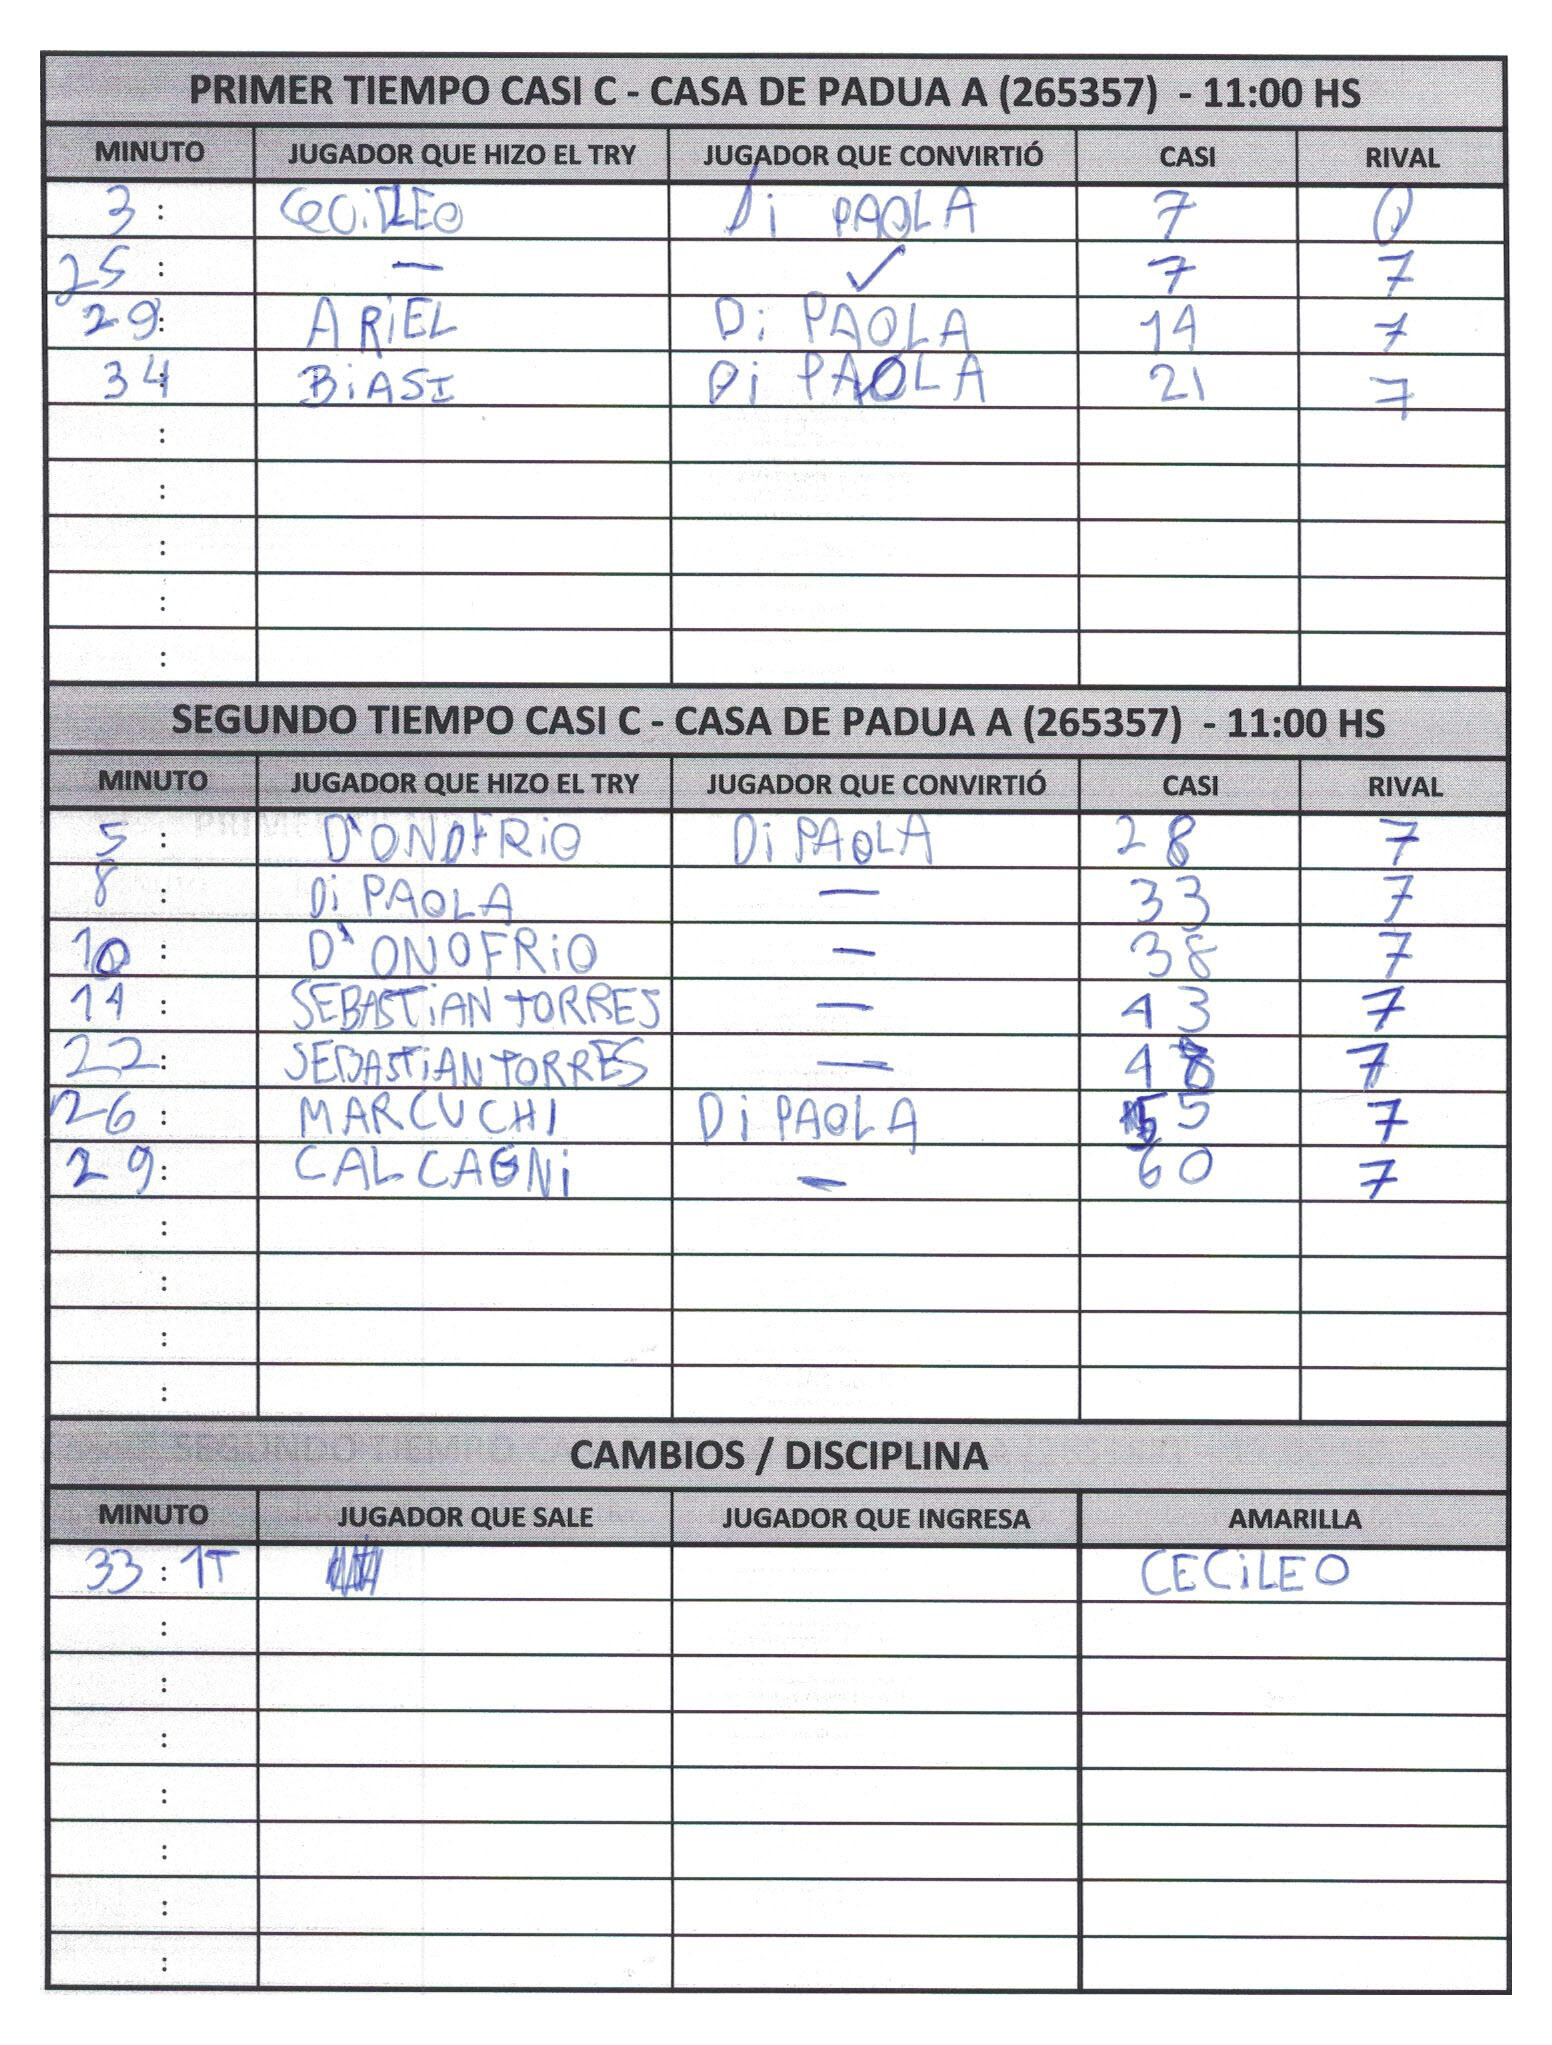 PRIMER TIEMPO CASI C - CASA DE PADUA A (265357) - 11:00 HS
MINUTO JUGADOR QUE HIZO EL TRY JUGADOR QUE CONVIRTIÓ CASI RIVAL
3 : CECiLEO Di PAOLA 7 0
25 : — ✓ 7 7
29: ARiEL Di PAOLA 14 7
34: BiASI Di PAOLA 21 7
:
:
:
:
:
SEGUNDO TIEMPO CASI C - CASA DE PADUA A (265357) - 11:00 HS
MINUTO JUGADOR QUE HIZO EL TRY JUGADOR QUE CONVIRTIÓ CASI RIVAL
5 : D'ONOFRiO Di PAOLA 28 7
8 : Di PAOLA — 33 7
10 : D'ONOFRiO — 38 7
14 : SEBASTiAN TORRES — 43 7
22: SEBASTiAN TORRES — 48 7
26: MARCUCHI Di PAOLA 55 7
29: CALCAGNi — 60 7
:
:
:
:
CAMBIOS / DISCIPLINA
MINUTO JUGADOR QUE SALE JUGADOR QUE INGRESA AMARILLA
33 : 1T CECiLEO
:
:
:
:
:
:
: